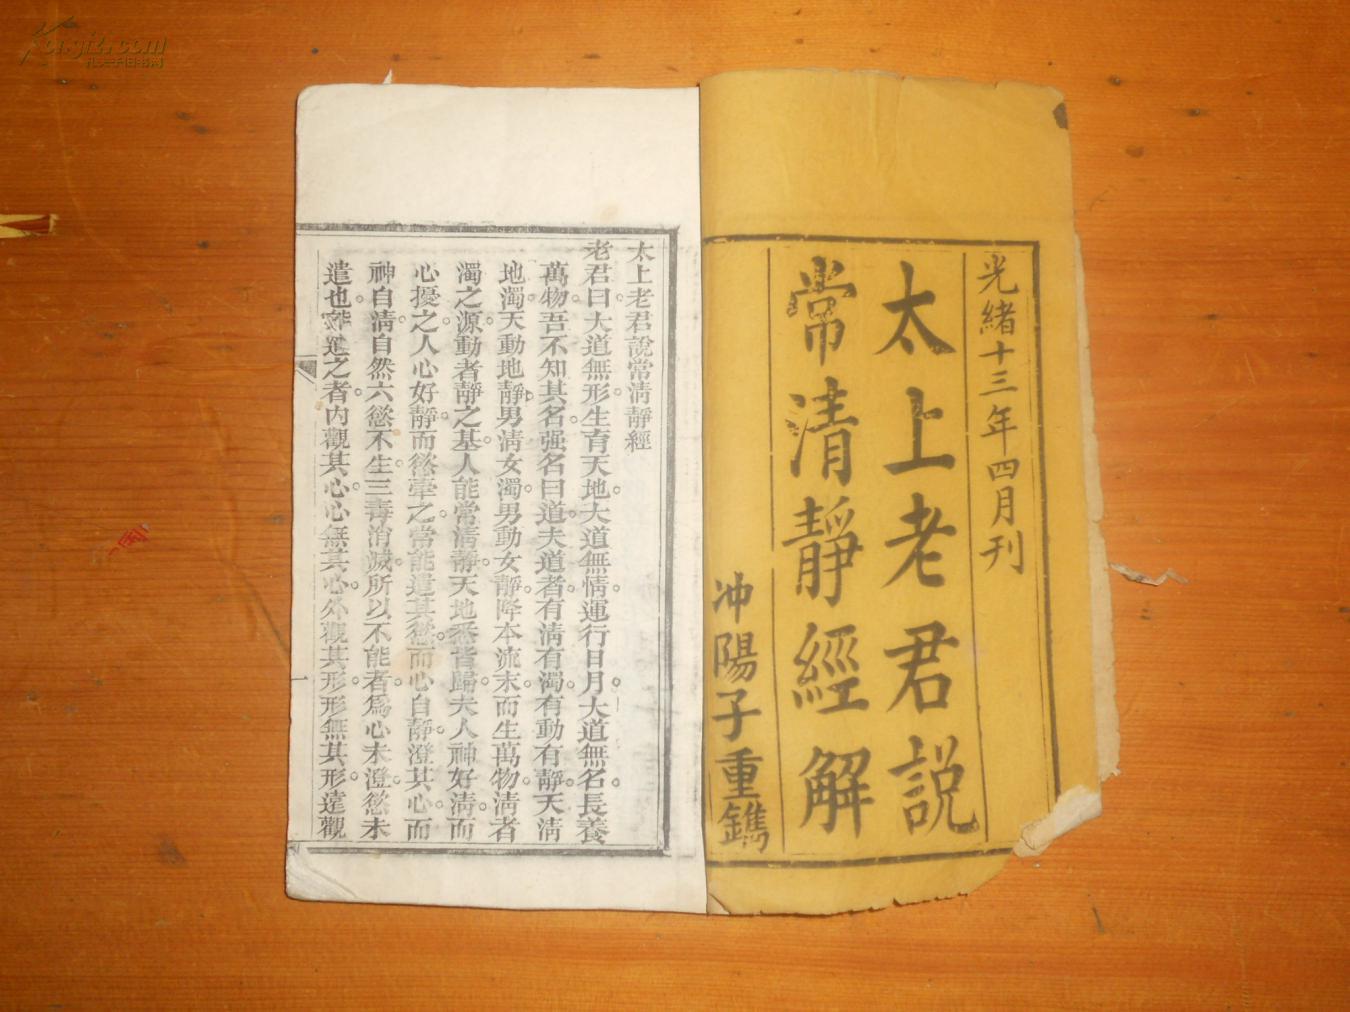 光緒十三年四月刊
太上老君說
常清靜經解
冲陽子重鐫
太上老君說常清靜經
老君曰大道無形生育天地大道無情運行日月大道無名長養
萬物吾不知其名强名曰道夫道者有清有濁有動有靜天清
地濁天動地靜男清女濁男動女靜降本流末而生萬物清者
濁之源動者靜之基人能常清靜天地悉皆歸夫人神好清而
心擾之人心好靜而慾牽之常能遣其慾而心自靜澄其心而
神自清自然六慾不生三毒消滅所以不能者爲心未澄慾未
遣也能遣之者內觀其心心無其心外觀其形形無其形遠觀
一
Kongfz.com
孔夫子旧书网